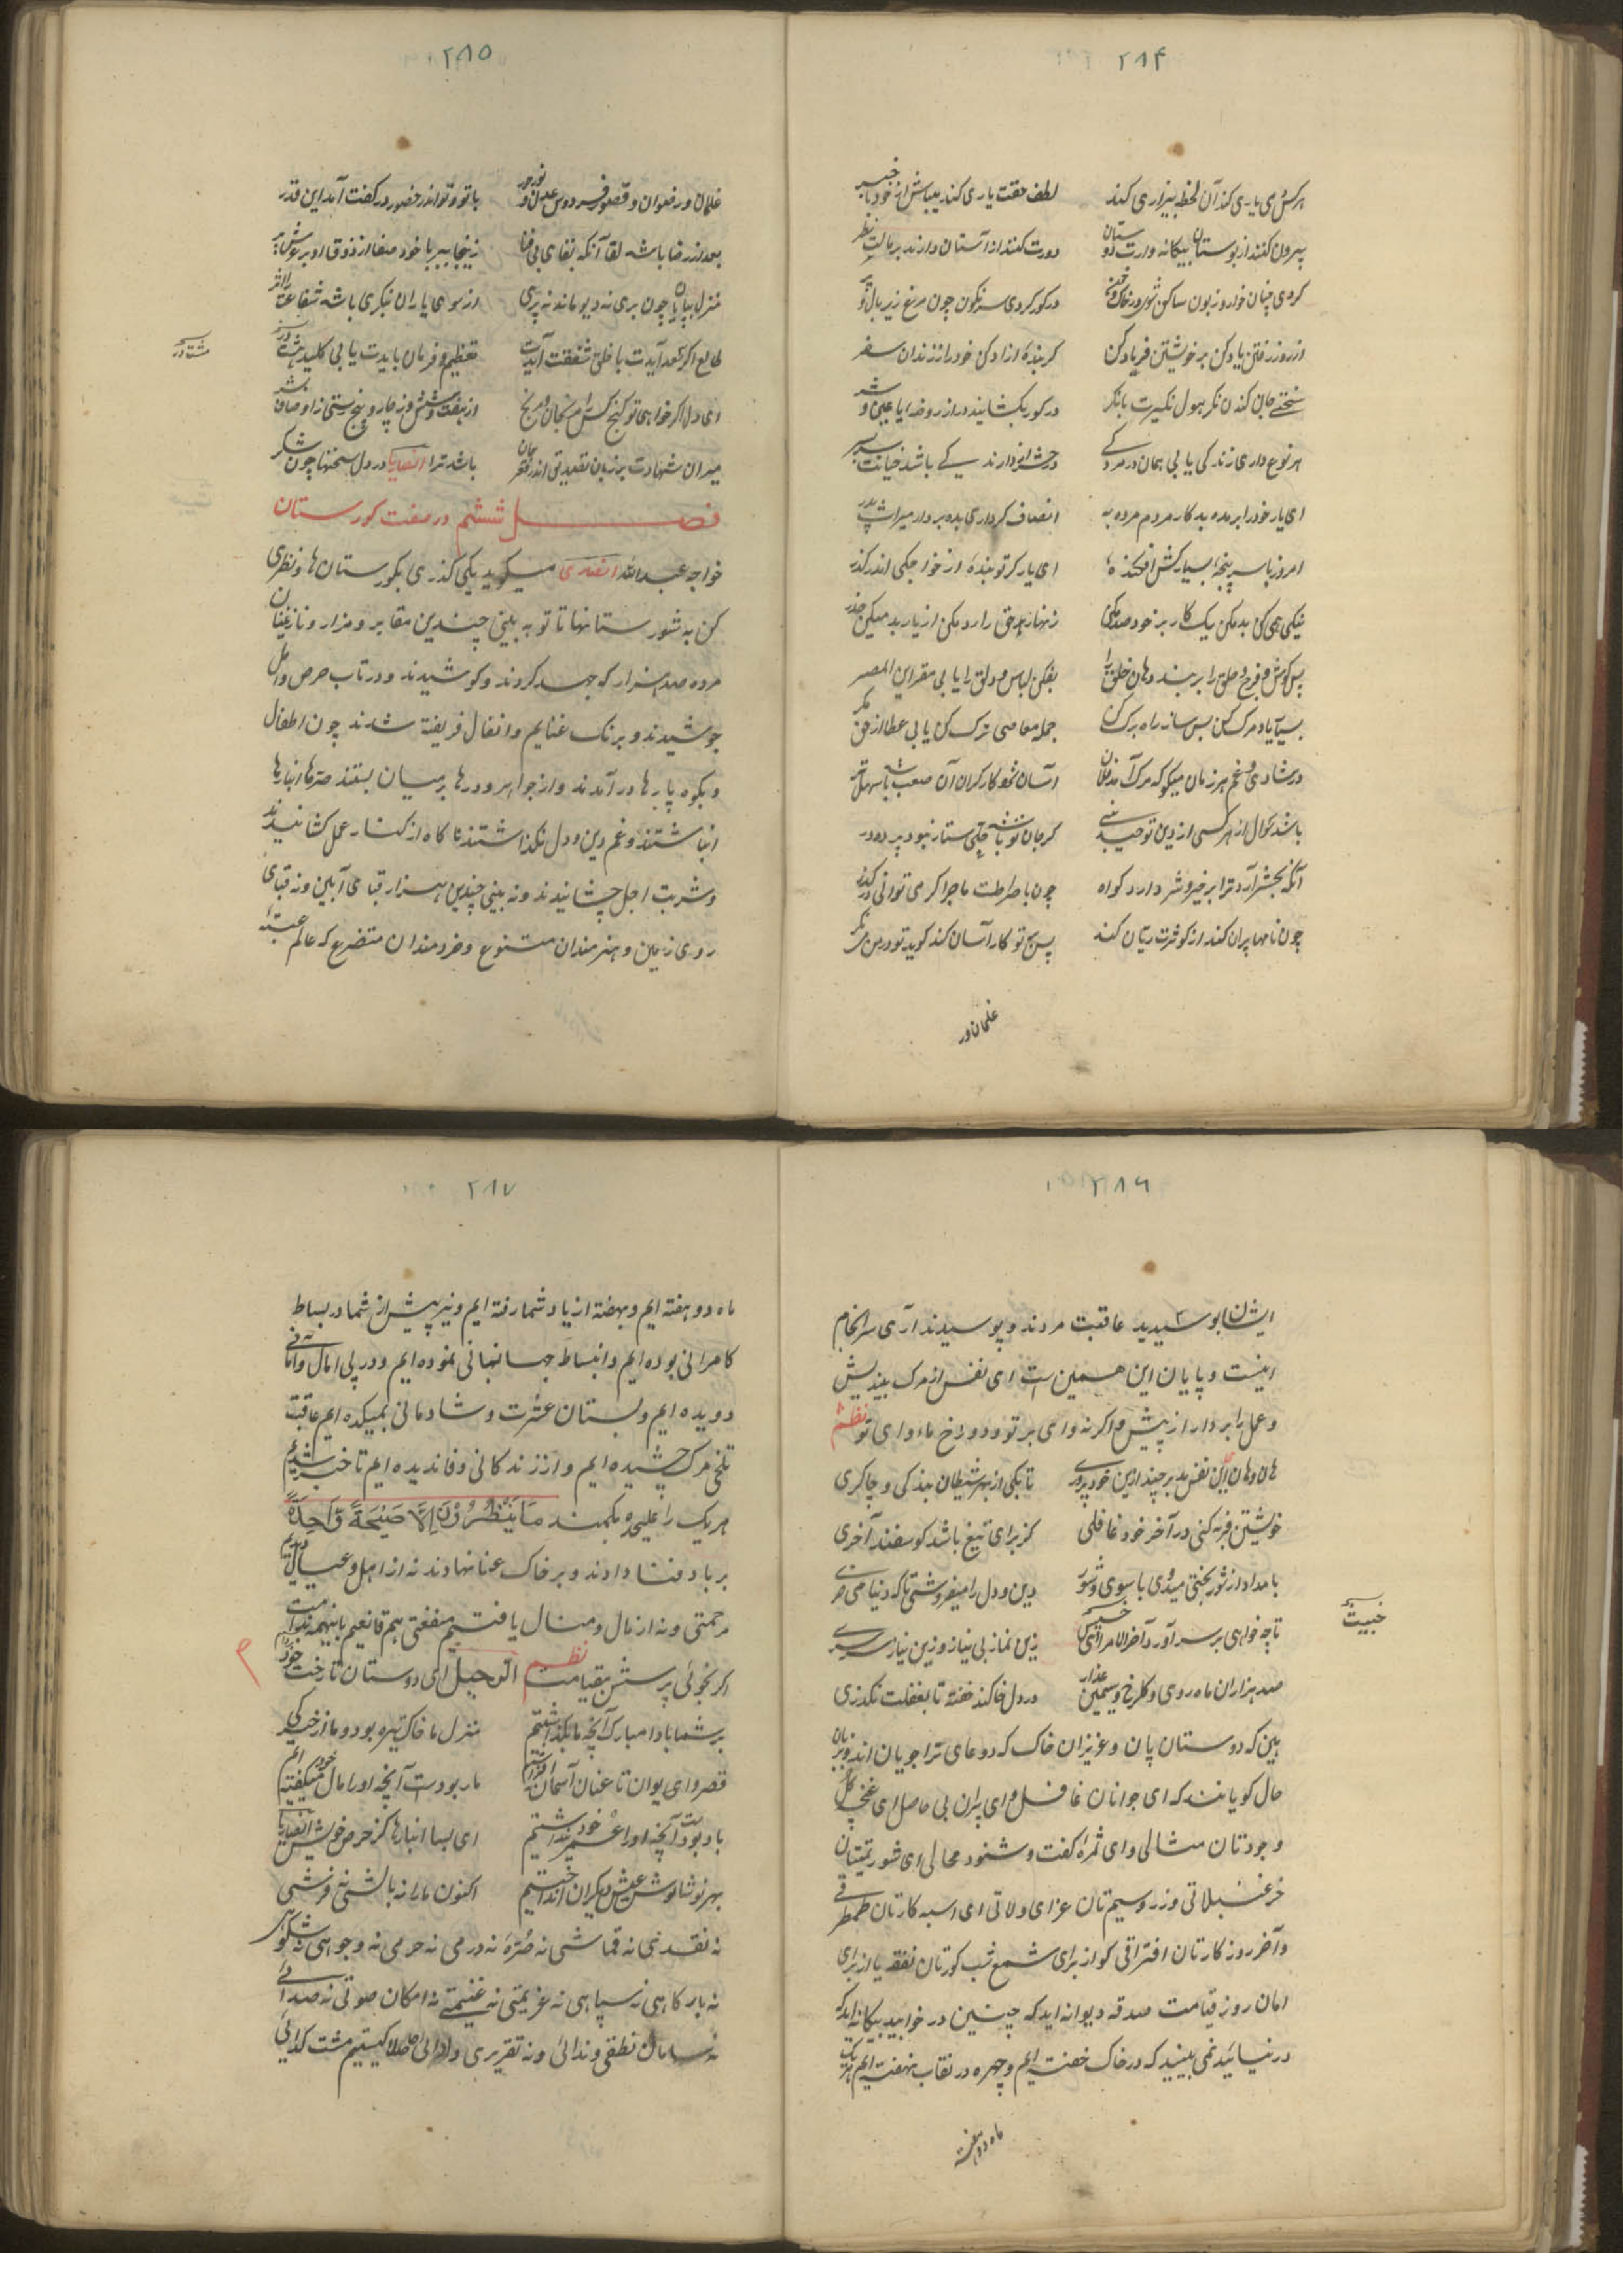 ۲۸۴
هر کس که یاری کند آن لحظه بیزاری کند لطف حقت یاری کند میباش از خود با خبر
بیرون کنند از بوستان بیکانه وارت دوستان دورت کنند از آستان دارند بر مالت نظر
کردی چنان خوار و زبون ساکن شوی در خاک و خون در کور کردی سرنکون چون مرغ زیر بال و پر
از روز رفتن یاد کن بر خویشتن فریاد کن کر بندهٔ ازاد کن خود را ز زندان سفر
سختی جان کندن نکر هول نکیرت بانکر در کور بکشایند در از روضه
هر نوع داری زندکی یابی همان در مردکی
ای یار خود را بر مده بد کار مردم مرده به انصاف کرداری بده بردار میراث پدر
امروز با سر پنجهٔ بسیار کش افکندهٔ ای یار کر تو بندهٔ از خواجکی اندر کذر
نیکی همی کن بد مکن یک کار بر خود صد مکن زنهار هر حق را رد مکن از یار بد میکن حذر
پس کوش و فرج و حلق را بر بند دهان خلق را بفکن لباس و دلق را یابی مقر این المصر
بسیا یاد مرک کن بس ساز راه برک کن جمله معاصی ترک کن یابی عطا از حق مکر
در شادی و غم هر زمان میکو که مرک آمد آسان شود کار کران آن صعب باشد سهل تر
باشد سوال از هر کسی از دین توحید بسی کر جان تو باشد ستار نبود پرده در
آنکه بحشر آرد ترا بر خیر و شر دارد کواه چون با صراطت ماجرا کر می توانی در کذر
چون نامها پران کند از کوثرت ریان کند پس بر تو کار آسان کند کوید تو در من نکر
غلمان ور
۲۸۵
غلمان و رضوان و قصور فردوس عدن و نور حور با تو و تو اندر حضور در کفت آمد این قدر
بعد از رضا باشد لقا آنکه بقای بی فنا زینجا ببر با خود صفا از ذوق او بر
منزل بپایان چون بری نه دیو ماند نه پری از سوی یاران نبکری باشد شفاعت را اثر
طالع اکر سعد آیدت با خلق شفقت آیدت تعظیم و فرمان بایدت یابی کلید هشت در
ای دل اکر خواهی تو کنج کس را مرنجان و مرنج از هفت و شش وز چار و پنج رستی ز اوصاف بشر
میران شهادت بر زبان تصدیق اندر قعر جان باشد ترا انصاریا در دل سخنها چون شکر
فصل ششم در صفت کورستان
خواجه عبدالله انصاری میکوید یکی کذری بکورستان ها و نظری
کن به شورستانها تا تو به بینی چندین مقابر و مزار و نازنینان
مرده صد هزار که جهد کردند و کوشیدند و در تاب حرص و امل
جوشیدند و برنک غنایم و انفال فریفته شدند چون اطفال
و بکوه پارها در آمدند و از جواهر و درها بر میان بستند صرها انبارها
انباشتند و غم دین و دل نکذاشتند نا کاه از کنار عمل کشانیدند
و شربت اجل چشانیدند و نه بینی چندین هزار قبای آبلین و نه قبای
روی زمین و هنرمندان متنوع و خردمندان متضرع که عالم عتبه
هشت در
۲۸۶
ایشان ابوسیدید عاقبت مردند و پوسیدند آری سرانجام
اینست و پایان این همین است ای نفس از مرک بیندیش
و عمل را بردار از پیش و اکر نه وای بر تو و دوزخ ماوای تو نظم
هان و هان این نفس بد بر چند ازین خود پروری تا بکی از بهر شیطان بندکی و چاکری
خویشتن فربه کنی در آخر خود غافلی کز برای تیغ باشد کوسفند آخری
بامداد از شور بختی میدوی با سوی و شور دین و دل را میفروشی تا که دنیا می خری
تا چه خواهی بر سر آورد آخر الامر زین نماز بی نیاز و زین نیاز سرسری
صد هزاران ماه روی و کلرخ و سیمین عذار در دل خاکند خفته تا بغفلت نکذری
بین که دوستان پان و عزیزان خاک که دو عای ترا جویان اند و بزبان
حال کویانند که ای جوانان غافل و ای پیران بی حاصل ای غنچه کل
وجودتان مشالی و ای ثمره کفت و شنود محالی ای شور
خرغنبلاتی وزر و سیم تان عزای ولاتی ای اسبه کارتان طمطراقی
و آخر روز کارتان افتراقی کو از برای شمع شب کورتان نفقه یا از برای
امان روز قیامت صدقه دیوانه اید که چنین در خوابید بیکانه اید که
در نیائید نمی بینید که در خاک خفته ایم و چهره در نقاب نهفته ایم هر یک
خبیت
ماه دو هفته
۲۸۷
ماه دو هفته ایم و بهفته از یاد شما رفته ایم و نیر پیش از شما در بساط
کامرانی بوده ایم و انبساط جهانبانی نموده ایم و در پی امال و امانی
دویده ایم و بستان عشرت و شادمانی بمیکده ایم عاقبت
تلخی مرک چشیده ایم و از زندکانی وفا ندیده ایم تا خبر شدیم
هر یک را علیحده بکمند مَا يَنْظُرُونَ إِلَّا صَيْحَةً وَّاحِدَةً
بر باد فنا دادند و بر خاک عنا نهادند نه از اهل و عیال
مرحمتی و نه از مال و منال یافتیم منفعتی هم قانعیم باینهمه ندامت
اکر نخوئی پرسش بقیامت نظم الرحیل ای دوستان تا رخت خود
بر شما بادا مبارک آنچه ما بکذاشتیم منزل ما خاک تیره بود و ما از
قصر و ایوان تا عنان آسمان ما ربودست آنچه او را مال خود میکفته ایم
باد بودست آنچه او را عمر خود پنداشتیم ای بسا انبارها کز حرص خویش انصاریا
بهر نوشانوش عیش بیکران انداختیم اکنون ما را نه بالشی نه فرشی
نه نقدی نه قماشی نه صره نه درمی نه حرمی نه و جواهری نه شکوه
نه بارکاهی نه سپاهی نه عزیمتی نه غنیمتی نه امکان صوتی نه صدائی
نه سامان نطقی و ندائی و نه تقریری و ادائی اصلا کیستیم مشت کدائی